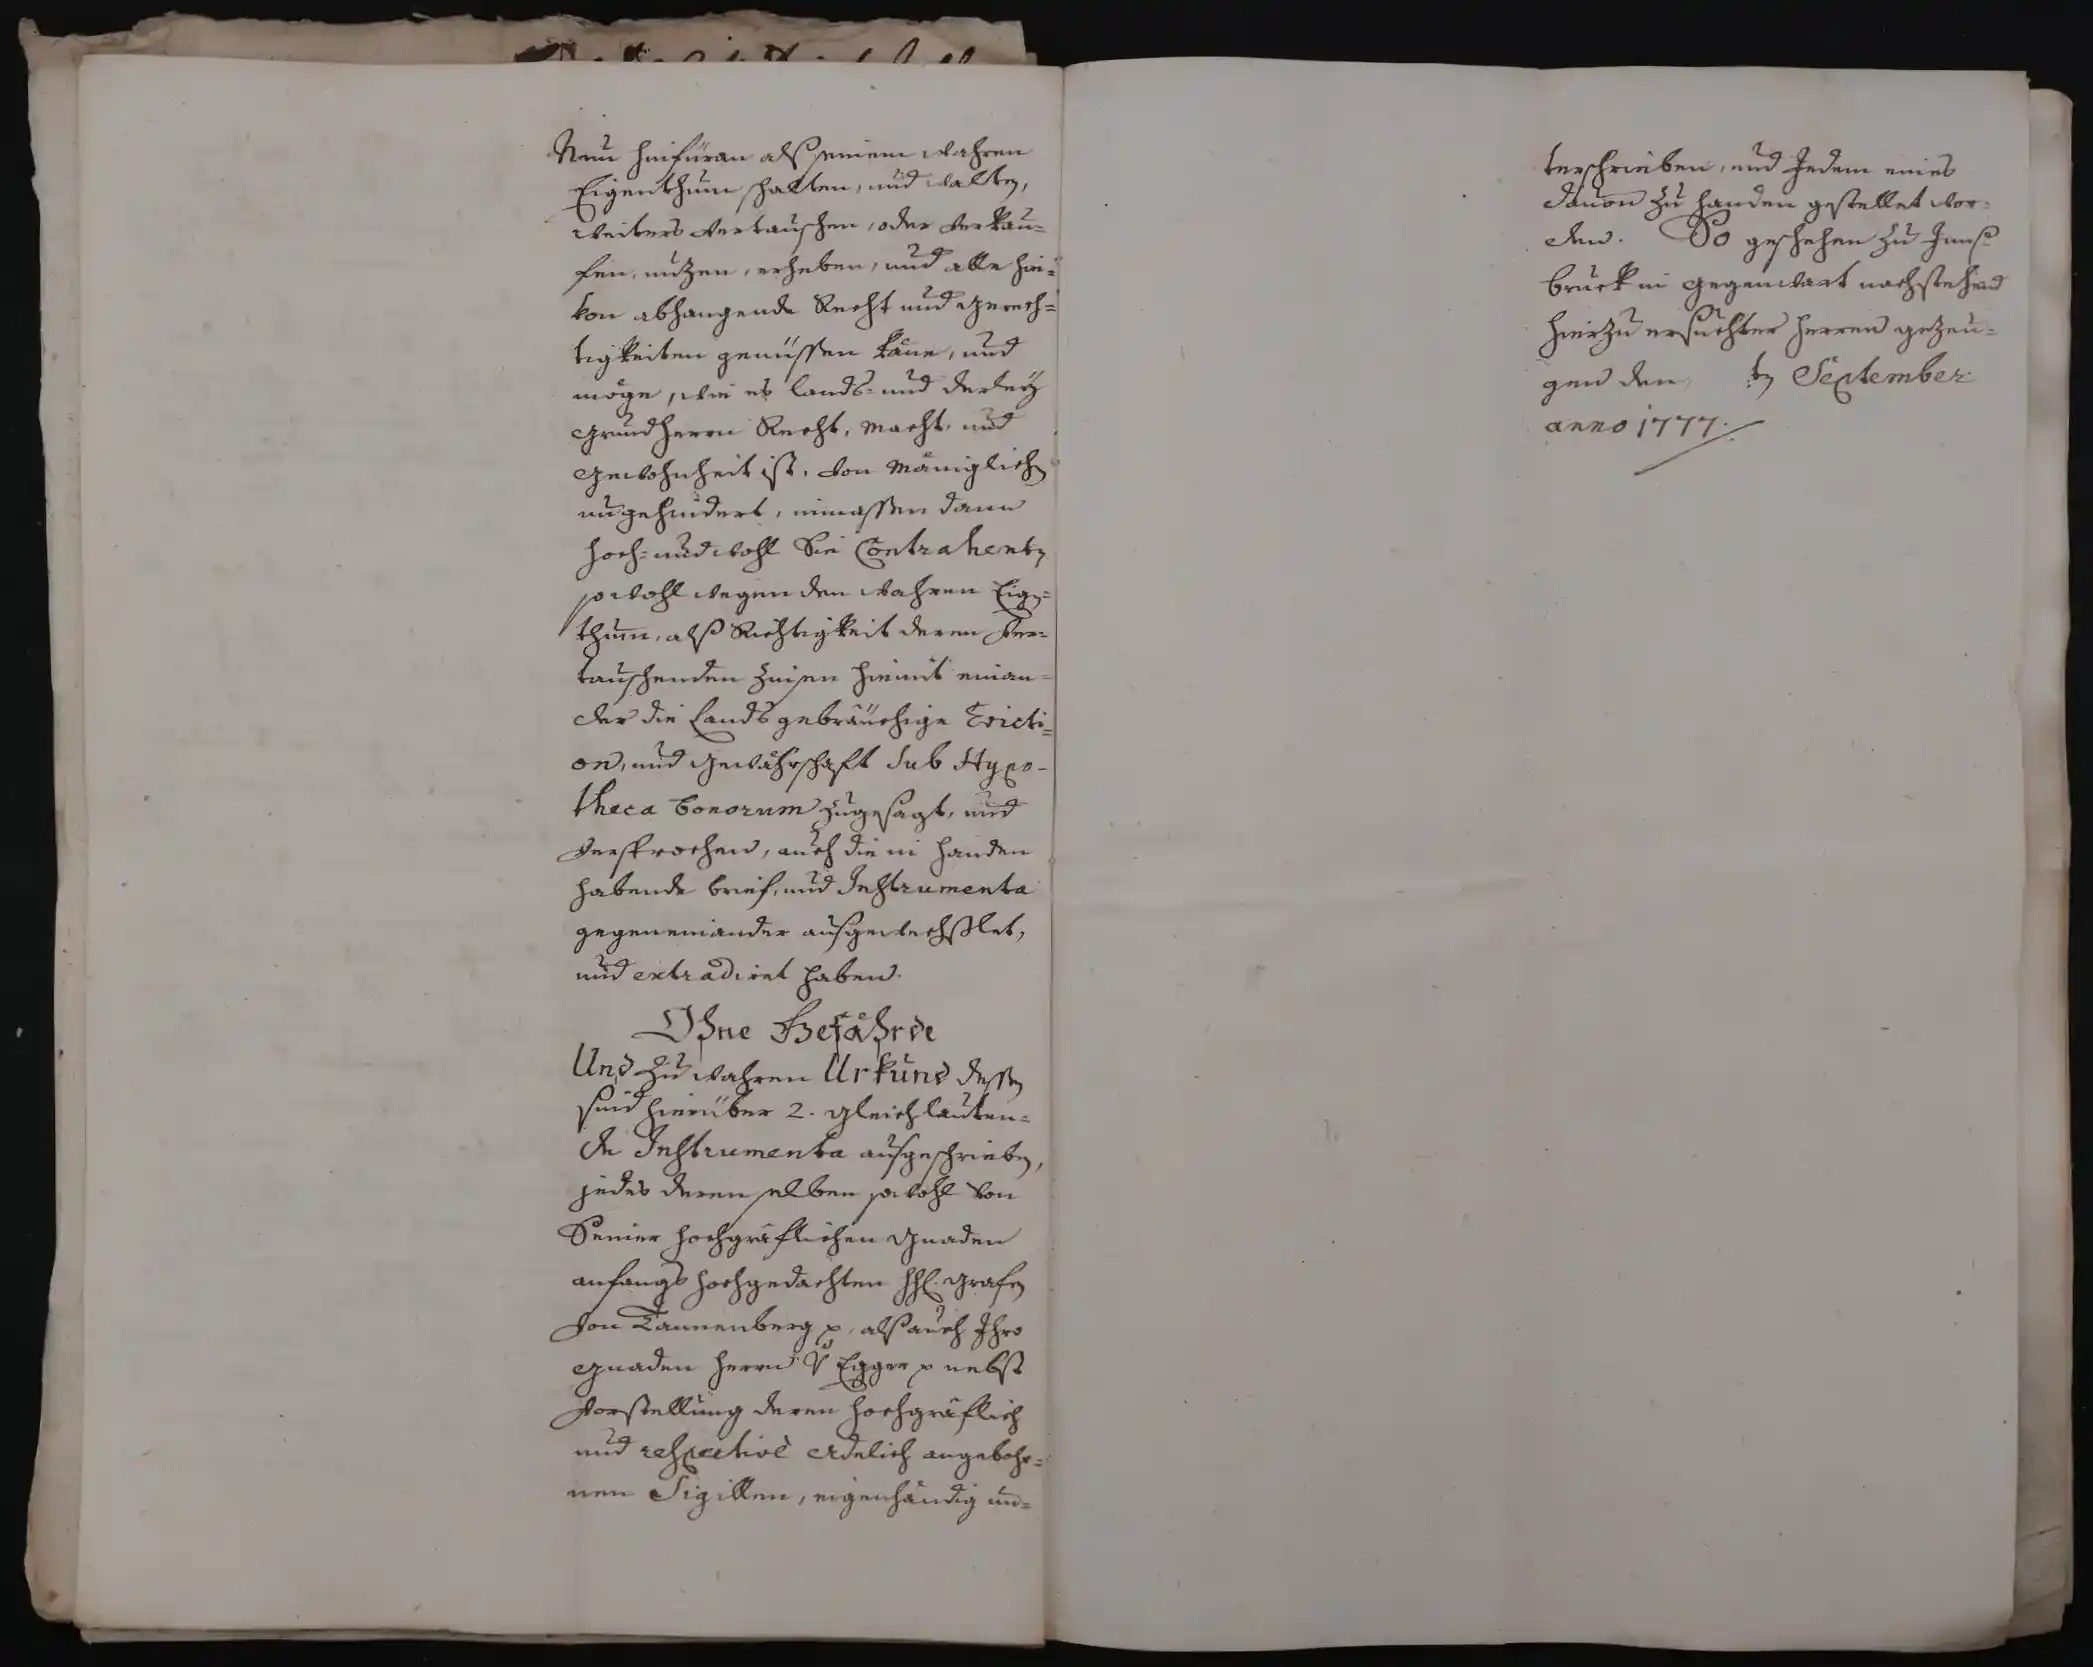 Nun hinfüran alß seinem wahren
Eigenthum schalten, und walten,
weiters vertauschen, oder verkau=
fen, nuzen, erheben, und alle hie=
von abhangende Recht und Gerech=
tigkeiten genüssen käne, und
möge, wie es Lands= und derley
Grundherrn Recht, Macht, und
Gewohnheit ist, von Mäniglichen
ungehindert, inmassen dann
Hoch= und wohl Sie Contrahenten
sowohl wegen den wahren Eigen=
thum, alß Richtigkeit deren Ver=
tauschenden Zinsen hiemit einan=
der die Landsgebräuchige Evicti=
on, und Gewährschaft sub Hypo-
theca bonorum zugesagt, und
versprochen, auch die in Handen
habende Brief, und Instrumenta
gegeneinander ausgewechßlet,
und extradiret haben.
Ohne Gefährde
Und zu wahren Urkund dessen
sind hierüber 2. gleichlauten=
de Instrumenta ausgeschrieben,
jedes derenselben sowohl von
Seiner Hochgräflichen Gnaden
anfangs Hochgedachten HH. Grafen
von Tannenberg, alß auch Ihro
Gnaden Herrn v Egger nebst
Vorstellung deren Hochgräflich
und respective Adelich angebohr=
nen Sigillen, eigenhändig un=
terschrieben, und Jedem eines
davon zu Handen gestellet wor=
den. So geschehen zu Innß
bruck in Gegenwart nachstehend
hierzu ersuchter Herren Gezeu=
gen den ten September
anno 1777.